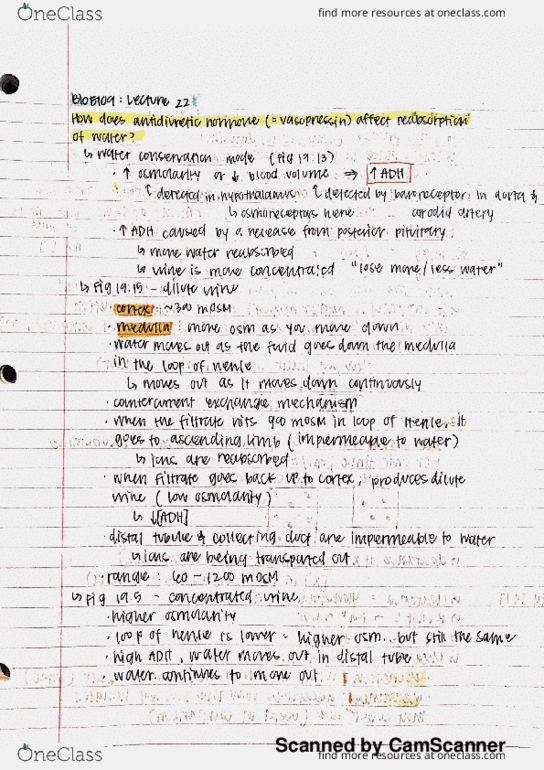 OneClass
find more resources at oneclass.com
BIOB109: Lecture 22
How does antidiuretic hormone (= vasopressin) affect reabsorption
of water?
↳ water conservation mode (Fig 19.13)
· ↑ osmolarity or ↓ blood volume ⇒ ↑ ADH
↑ detected in hypothalamus ↑ detected by baroreceptor in aorta &
↳ osmoreceptors here carodid artery
· ↑ ADH caused by a release from posterior pituitary
↳ more water reabsorbed
↳ urine is more concentrated "lose more/less water"
↳ Fig 19.15 - dilute urine
· cortex: ~300 mOSM
· medulla: more osm as you move down
· water moves out as the fluid goes down the medulla
in the loop of henle
↳ moves out as it moves down continuously
· countercurrent exchange mechanism
· when the filtrate hits 900 mOSM in loop of Henle, it
goes to ascending limb (impermeable to water)
↳ ions are reabsorbed
· when filtrate goes back up to cortex, produces dilute
urine (low osmolarity)
↳ ↓[ADH]
· distal tubule & collecting duct are impermeable to water
↳ ions are being transpated out
· range: 60 - 1200 mOSM
↳ Fig 19.5 - concentrated urine
· higher osmolarity
· loop of henle is lower = higher osm. but still the same
· high ADH, water moves out in distal tube
· water continues to move out
Scanned by CamScanner
OneClass
find more resources at oneclass.com